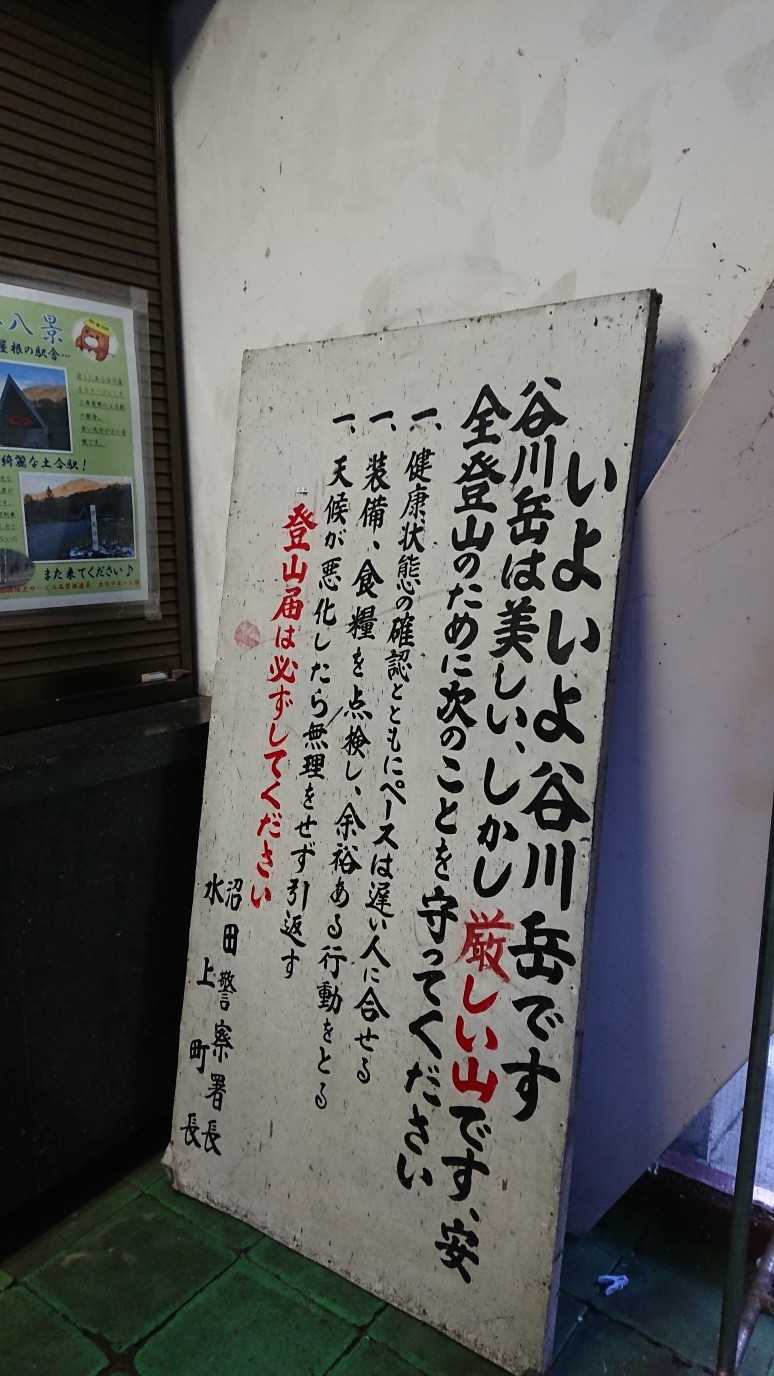 いよいよ谷川岳です
谷川岳は美しい、しかし厳しい山です、安
全登山のために次のことを守ってください
一、健康状態の確認とともにペースは遅い人に合せる
一、装備、食糧を点検し、余裕ある行動をとる
一、天候が悪化したら無理をせず引返す
一 登山届は必ずしてください
沼田警察署長
水上町長
八景
屋根の駅舎…
綺麗な土合駅!
また来てください♪